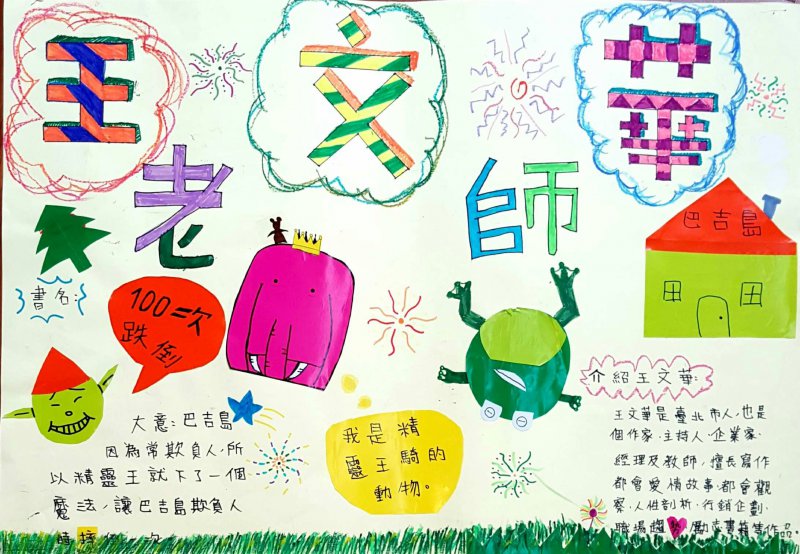 王文華
老師
巴吉島
書名:
100=次
跌倒
介紹王文華:
大意:巴吉島
因為常欺負人,所
以精靈王就下了一個
魔法,讓巴吉島欺負人
我是精
靈王騎的
動物。
王文華是臺北市人,也是
個作家、主持人、企業家、
經理及教師,擅長寫作
都會愛情故事、都會觀
察、人性剖析、行銷企劃、
職場